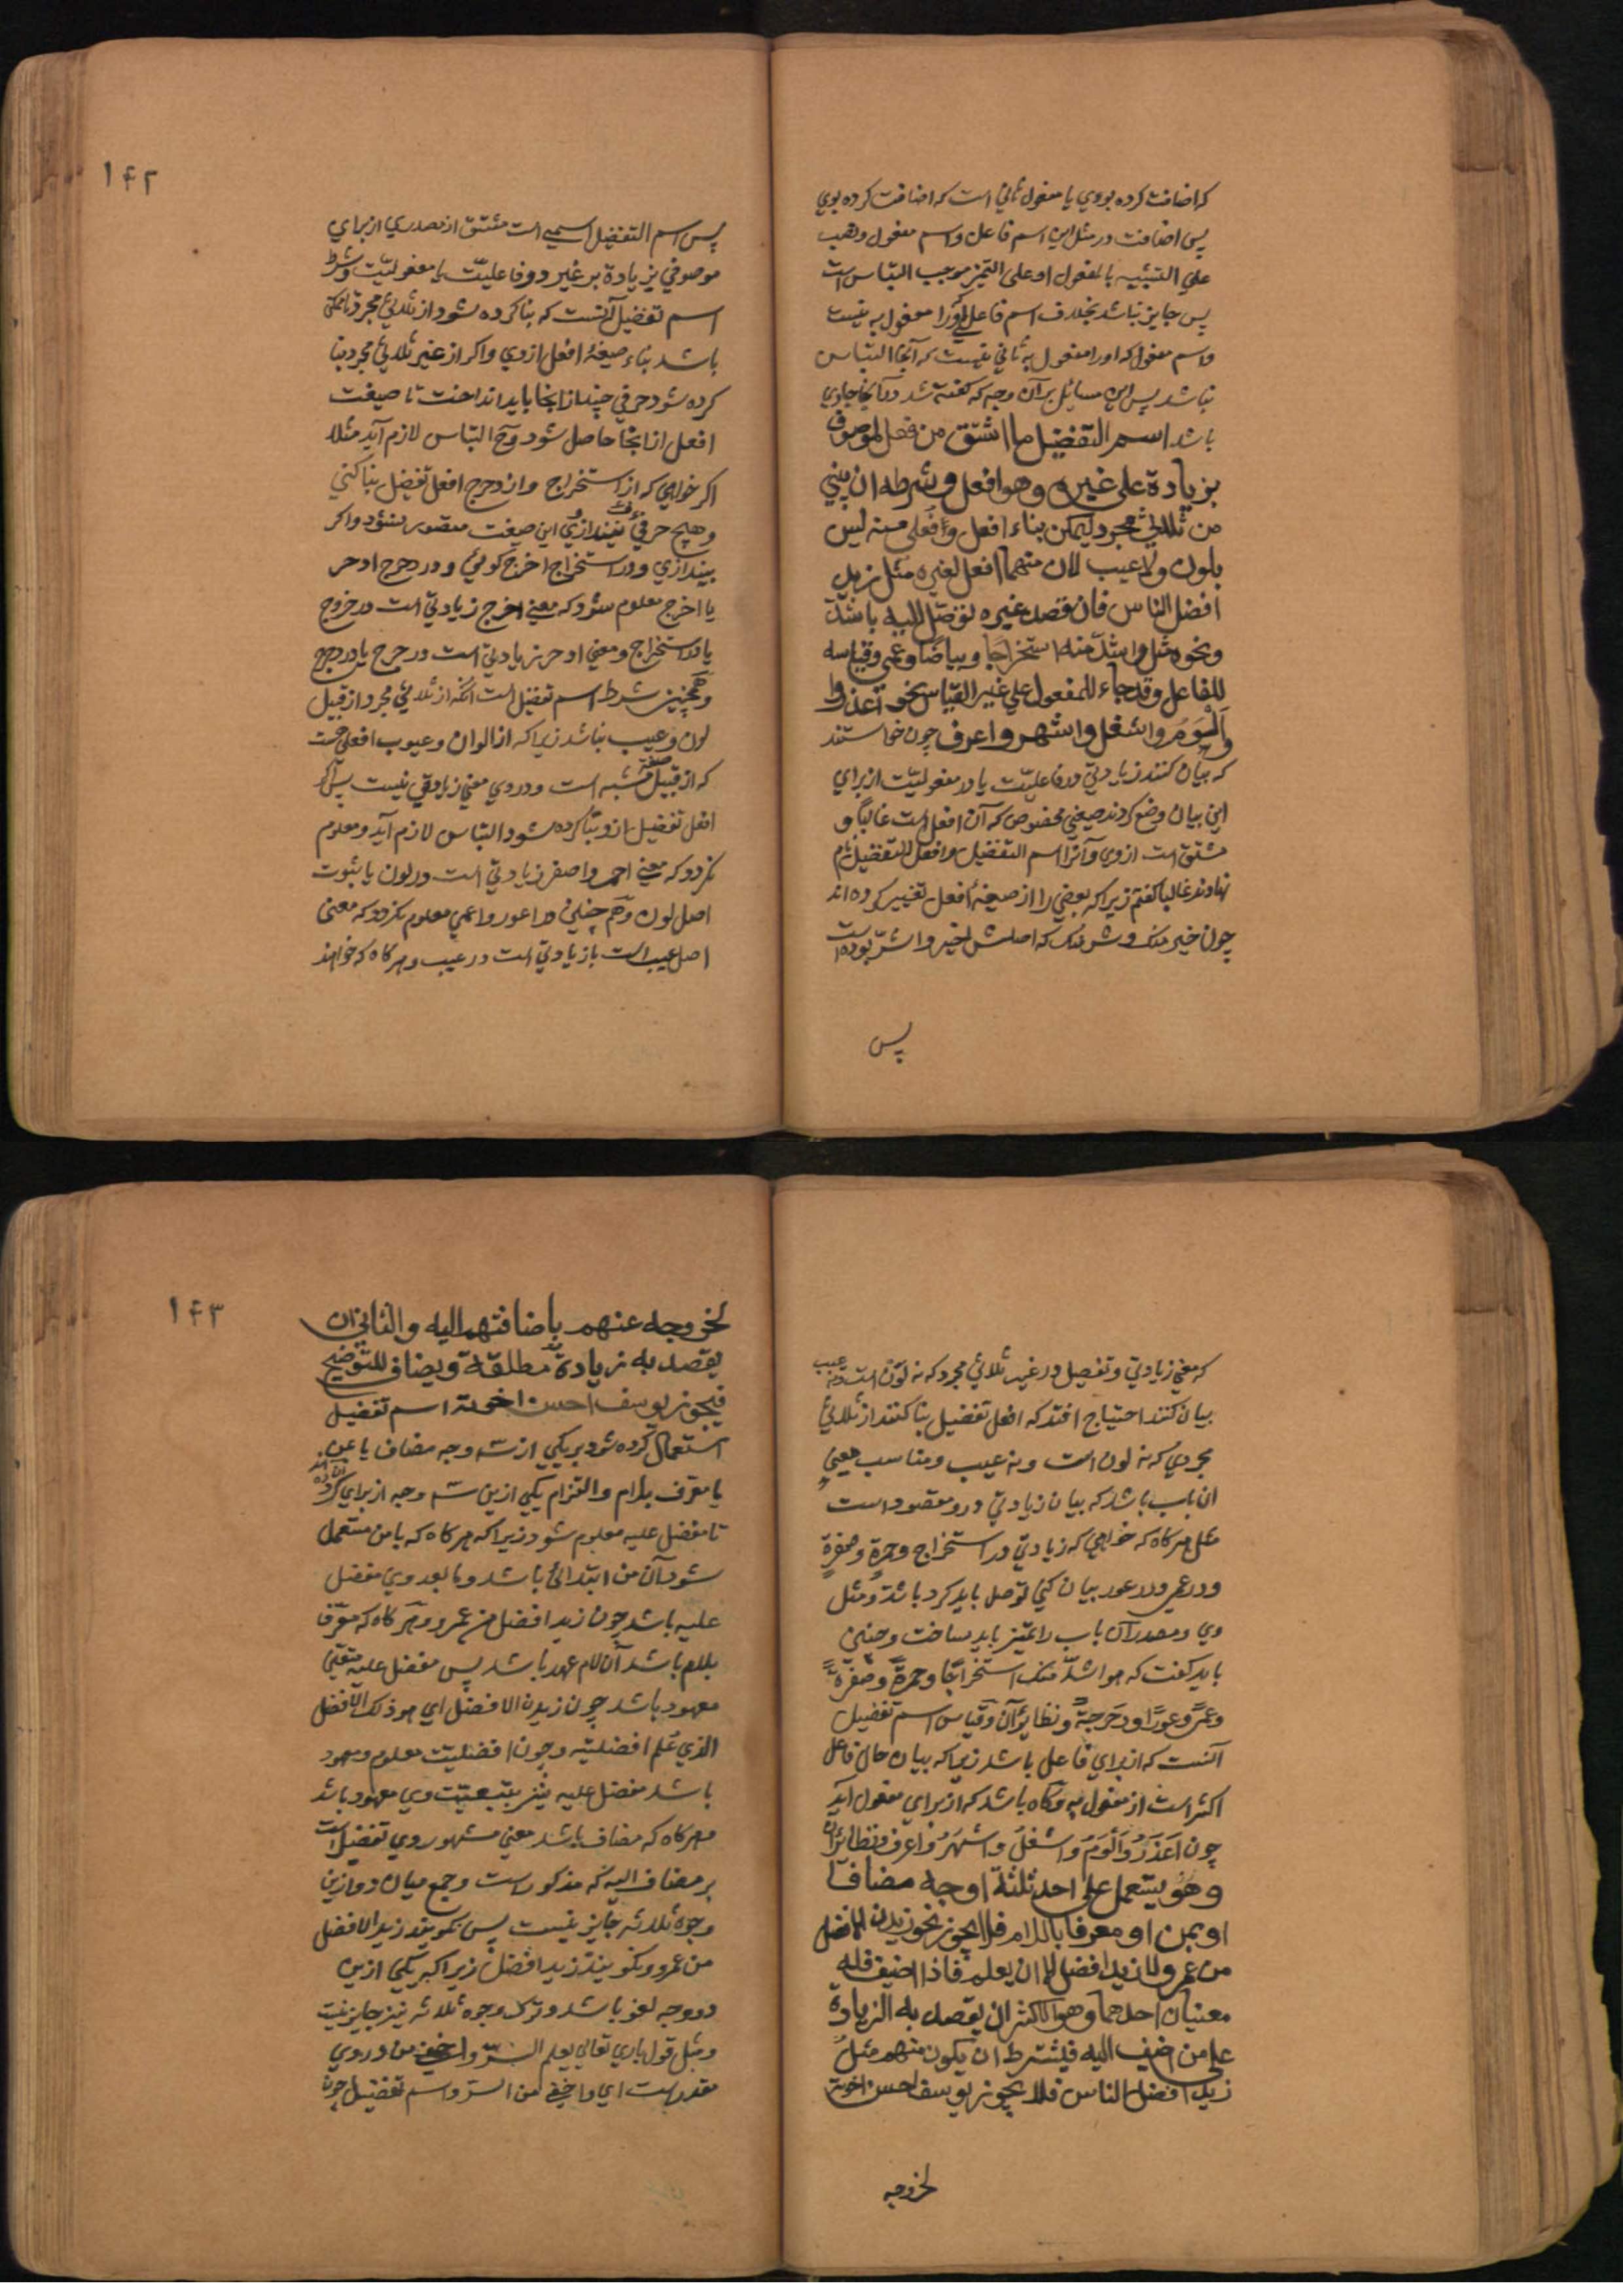 که اضافت کرده بووی یا مفعول ثانی است که اضافت کرده بوی
پس اضافت در مثل این اسم فاعل و اسم مفعول و نصب
علی التشبیه بالمفعول او علی التمییز موجب التباس است
پس جایز نباشد بخلاف اسم فاعلی که او را مفعول به نیست
و اسم مفعول که او را مفعول به ثانی نیست که آنجا التباس
نباشد پس این مسایل بر آن وجه که گفته شد در آنجا جاری
باشد اسم التفضیل ما اشتق من فعل لموصوف
بزیادة علی غیره وهو افعل وشرطه ان یبنی
من ثلاثی مجرد لیمکن بناء افعل وافعلی منه لیس
بلون ولا عیب لان منهما افعل لغیره مثل زید
افضل الناس فان قصد غیره توصّل الیه باشدّ
ونحوه مثل هو اشدّ منه استخراجا وبیاضا وعمی وقیاسه
للفاعل وقد جاء للمفعول علی غیر القیاس نحو اعذر و
اَلْوَمُ واشغل واشهر واعرف چون خواستند
که بیان کنند زیادتی در فاعلیّت یا در مفعولیّت از برای
این بیان وضع کردند صیغهٔ مخصوص که آن افعل است غالبا و
مشتق است از وی و آنرا اسم التفضیل و افعل التفضیل نام
نهادند غالبا گفتم زیرا که بعضی را از صیغهٔ افعل تغییر کرده اند
چون خیر منک و شر منک که اصلش اخیر و اشرّ بوده است
پس
۱۴۲
پس اسم التفضیل اسمی است مشتق از مصدری از برای
موصوفی بزیادة بر غیر در فاعلیّت یا مفعولیّت و شرط
اسم تفضیل آنست که بنا کرده شود از ثلاثی مجرد تا ممکن
باشد بناء صیغهٔ افعل از وی و اگر از غیر ثلاثی مجرد بنا
کرده شود حرفی چند از انجا باید انداخت تا صیغت
افعل از انجا حاصل شود وح التباس لازم آید مثلا
اگر خواهی که از استخراج و از دحرج افعل تفضیل بنا کنی
و هیچ حرفی نیندازی این صیغت متصور نشود و اگر
بیندازی و در استخراج اخرج گوئی و در دحرج ادحر
یا اخرج معلوم نشود که معنی اخرج زیادتی است در خروج
یا در استخراج و معنی ادحر زیادتی است در حرج یا در دحرج
و همچنین شرط اسم تفضیل است آنکه از ثلاثی مجرد از قبیل
لون و عیب نباشد زیرا که از الوان و عیوب افعلی هست
که از قبیل صفة مشبه است و در وی معنی زیادتی نیست پس اگر
افعل تفضیل از و بنا کرده شود التباس لازم آید و معلوم
نگردد که معنی احمر و اصفر زیادتی است در لون یا ثبوت
اصل لون و هم چنین در اعور و اعمی معلوم نگردد که معنی
اصل عیب است یا زیادتی است در عیب و هر گاه که خواهند
که معنی زیادتی و تفصیل در غیر ثلاثی مجرد که نه لون است و نه عیب
بیان کنند احتیاج افتد که افعل تفضیل بنا کنند از ثلاثی
مجردی که نه لون است و نه عیب و مناسب معنی
آن باب باشد که بیان زیادتی درو مقصود است
مثل هر گاه که خواهی که زیادتی در استخراج و حمرة و صفرة
و در عمی و در عور بیان کنی توصل باید کرد باشدّ و مثل
وی و مصدر آن باب را تمییز باید ساخت و چنین
باید گفت که هو اشدّ منک استخراجًا وحمرةً وصفرةً
وعمیً وعورًا ودحرجةً و نظایر آن و قیاس اسم تفضیل
آنست که از برای فاعل باشد زیرا که بیان حال فاعل
اکثر است از مفعول به و گاه باشد که از برای مفعول آید
چون اَعذَرُ واَلْوَمُ واَشغلُ واَشْهَرُ واَعرف و نظائر آن
وهو یستعمل علی احد ثلثة اوجه مضافا
او بمن او معرفا باللام فلا یجوز نحو زید ن الافضل
من عمرو ولا زید افضل الا ان یعلم فاذا اضیف فله
معنیان احدهما وهو الاکثر ان یقصد به الزیادة
علی من اضیف الیه فیشترط ان یکون منهم مثل
زید افضل الناس فلا یجوز یوسف احسن اخوته
لخروجه
۱۴۳
لخروجه عنهم باضافتهم الیه والثانی ان
یقصد به زیادة مطلقة ویضاف للتوضیح
فیجوز یوسف احسن اخوته اسم تفضیل
استعمال کرده شود بر یکی از سه وجه مضاف یا بمن
یا معرف بلام و التزام یکی ازین سه وجه از برای آن کرده اند
تا مفضل علیه معلوم شود زیرا که هر گاه که با من مستعمل
شود آن من ابتدائی باشد و ما بعد وی مفضل
علیه باشد چون زید افضل من عمرو و هر گاه که معرّف
بلام باشد آن لام عهد باشد پس مفضل علیه متعیّن
معهود باشد چون زید ن الافضل ای هو ذلک الافضل
الذی عُلم افضلیته و چون افضلیّت معلوم و معهود
باشد مفضل علیه نیز بتبعیّت وی معهود باشد
و هر گاه که مضاف باشد معنی مشهور وی تفضیل است
بر مضاف الیه که مذکور است و جمع میان دو ازین
وجوه ثلاثه جایز نیست پس نگویند زید الافضل
من عمرو و نگویند زید افضل زیرا که یکی ازین
دو وجه لغو باشد و ترک وجوه ثلاثه نیز جایز نیست
و مثل قول باری تعالی یعلم السّر و اخفی من در وی
مقدر است ای واخفی من السرّ و اسم تفضیل چون